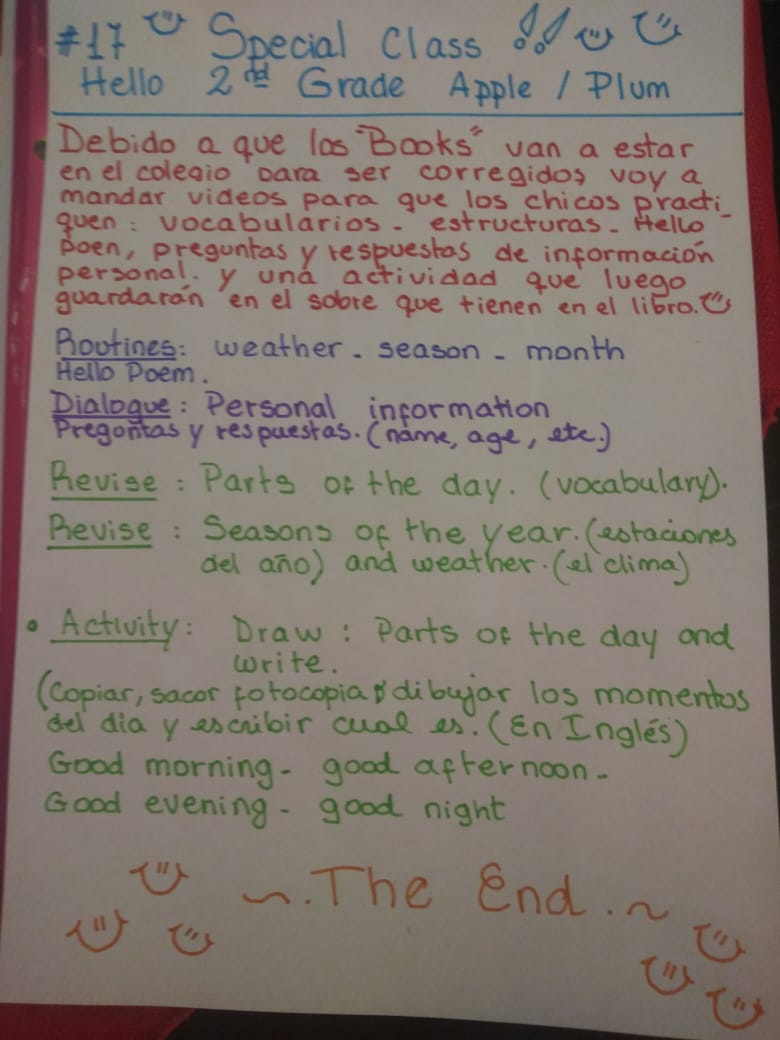 #17 Special Class !!
Hello 2nd Grade Apple / Plum
Debido a que los "Books" van a estar
en el colegio para ser corregidos voy a
mandar videos para que los chicos practi_
quen: vocabularios - estructuras - Hello
Poen, preguntas y respuestas de información
personal. y una actividad que luego
guardarán en el sobre que tienen en el libro.
Routines: weather - season - month
Hello Poem.
Dialogue: Personal information
Preguntas y respuestas. (name, age, etc.)
Revise: Parts of the day. (vocabulary).
Revise: Seasons of the year. (estaciones
del año) and weather. (el clima)
• Activity: Draw: Parts of the day and
write.
(Copiar, sacar fotocopia ó dibujar los momentos
del dia y escribir cual es. (En Inglés)
Good morning - good afternoon -
Good evening - good night
~. The End. ~